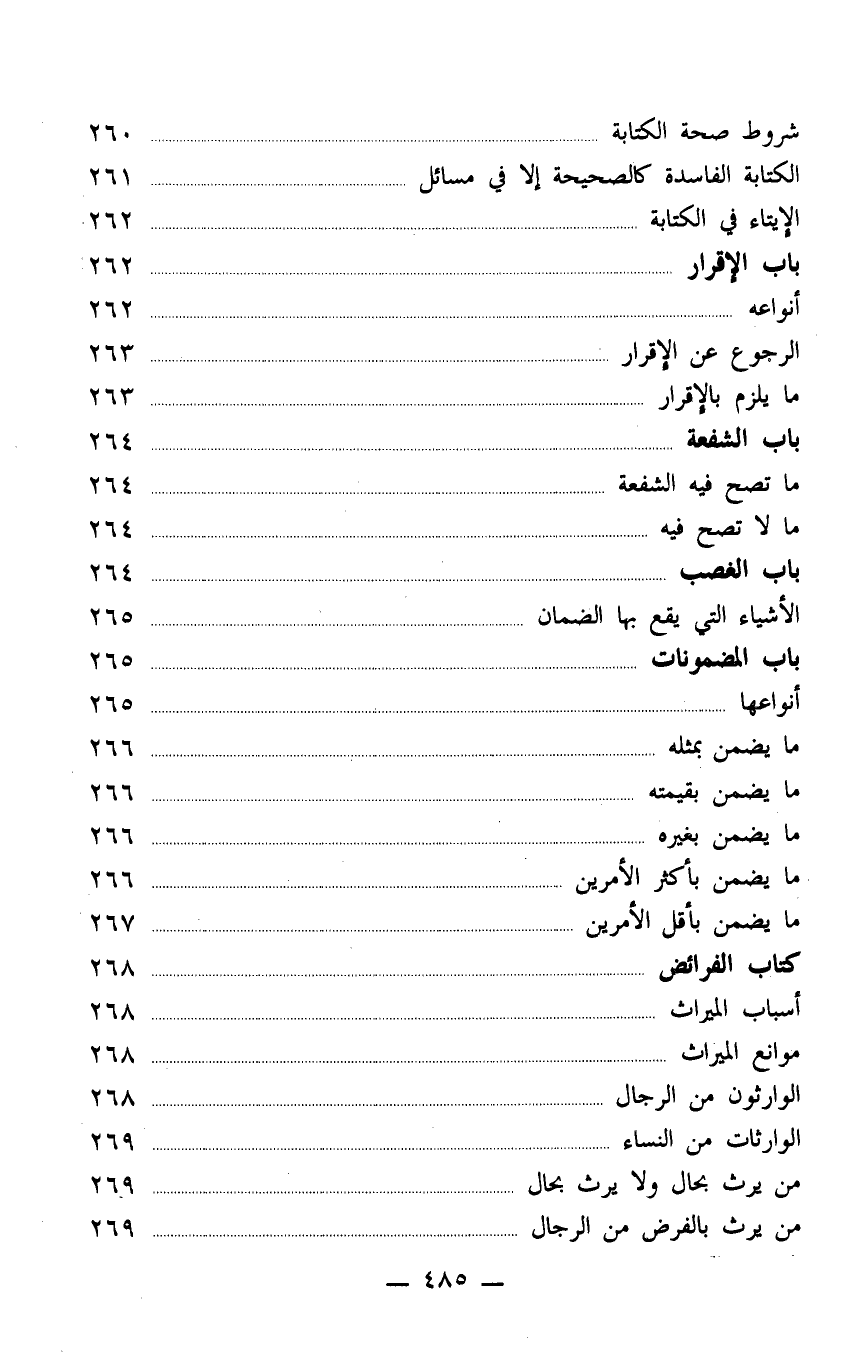 شروط صحة الكتابة ٢٦٠
الكتابة الفاسدة كالصحيحة إلا في مسائل ٢٦١
الإيتاء في الكتابة ٢٦٢
باب الإقرار ٢٦٢
أنواعه ٢٦٢
الرجوع عن الإقرار ٢٦٣
ما يلزم بالإقرار ٢٦٣
باب الشفعة ٢٦٤
ما تصح فيه الشفعة ٢٦٤
ما لا تصح فيه ٢٦٤
باب الغصب ٢٦٤
الأشياء التي يقع بها الضمان ٢٦٥
باب المضمونات ٢٦٥
أنواعها ٢٦٥
ما يضمن بمثله ٢٦٦
ما يضمن بقيمته ٢٦٦
ما يضمن بغيره ٢٦٦
ما يضمن بأكثر الأمرين ٢٦٦
ما يضمن بأقل الأمرين ٢٦٧
كتاب الفرائض ٢٦٨
أسباب الميراث ٢٦٨
موانع الميراث ٢٦٨
الوارثون من الرجال ٢٦٨
الوارثات من النساء ٢٦٩
من يرث بحال ولا يرث بحال ٢٦٩
من يرث بالفرض من الرجال ٢٦٩
— ٤٨٥ —